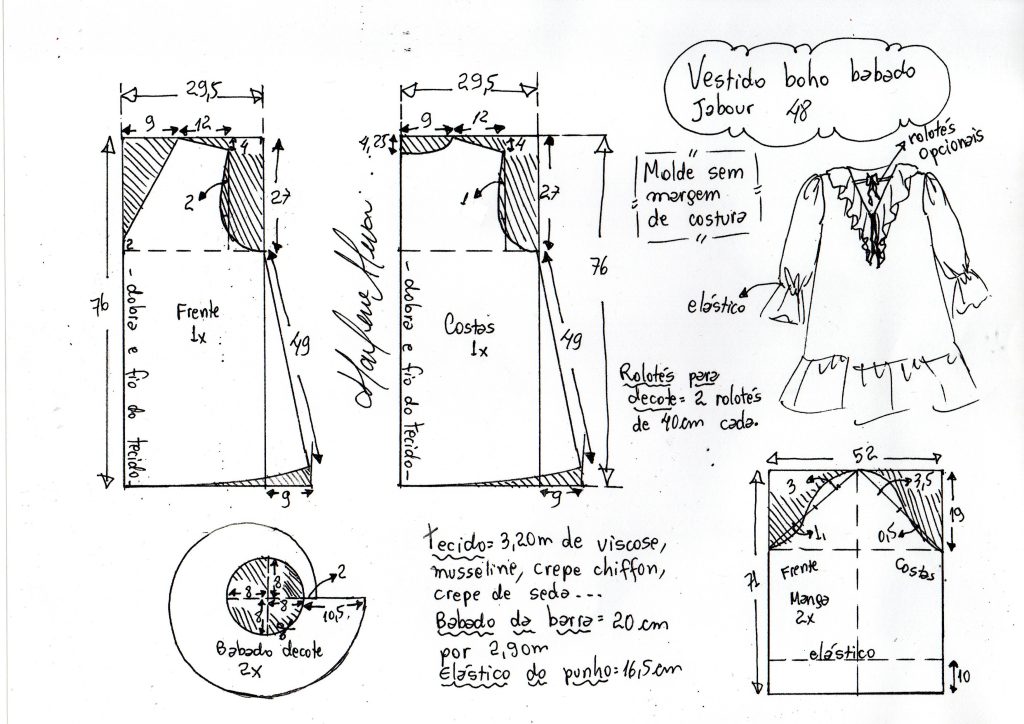 Vestido boho babado
Jabour 48
rolotés
opcionais
Molde sem
margem
de costura
elástico
Rolotés para
decote = 2 rolotés
de 40 cm cada.
29,5
9
12
4
2
27
2
76
Frente
1x
49
- dobra e fio do tecido -
9
29,5
9
12
4,25
4
1
27
76
Costas
1x
49
- dobra e fio do tecido -
9
8
8
8
8
8
2
10,5
Babado decote
2x
tecido = 3,20m de viscose,
musseline, crepe chiffon,
crepe de seda...
Babado da barra = 20 cm
por 2,90m
Elástico do punho = 16,5 cm
52
3
3,5
1
0,5
19
71
Frente
Costas
Manga
2x
elástico
10